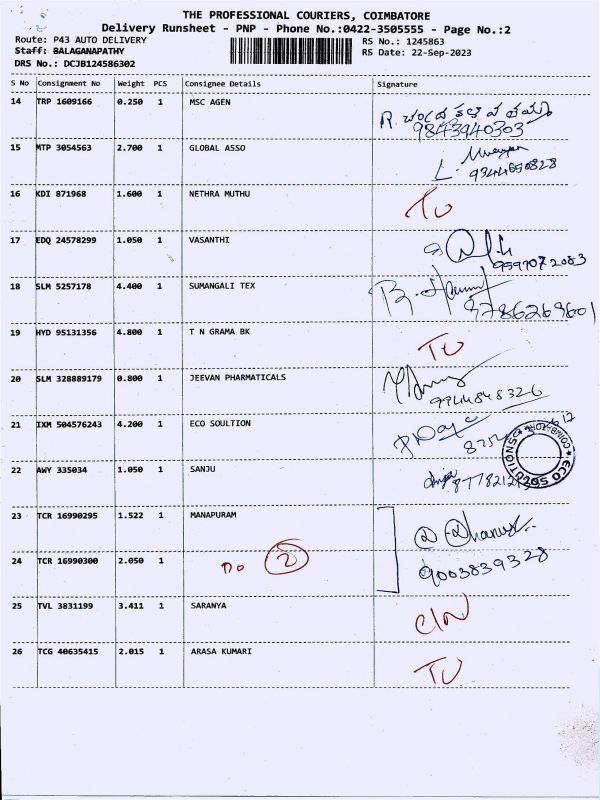 THE PROFESSIONAL COURIERS, COIMBATORE
Delivery Runsheet - PNP - Phone No.:0422-3505555 - Page No.:2
Route: P43 AUTO DELIVERY RS No.: 1245863
Staff: BALAGANAPATHY RS Date: 22-Sep-2023
DRS No.: DCJB124586302
S No Consignment No Weight PCS Consignee Details Signature
14 TRP 1609166 0.250 1 MSC AGEN
9843940303
15 MTP 3054563 2.700 1 GLOBAL ASSO
9344690828
16 KDI 871968 1.600 1 NETHRA MUTHU TU
17 EDQ 24578299 1.050 1 VASANTHI
9597072083
18 SLM 5257178 4.400 1 SUMANGALI TEX
9786269601
19 HYD 95131356 4.800 1 T N GRAMA BK TU
20 SLM 328889179 0.800 1 JEEVAN PHARMATICALS
9944848326
21 IXM 504576243 4.200 1 ECO SOULTION
ECO SOLUTIONS
22 AWY 335034 1.050 1 SANJU
23 TCR 16990295 1.522 1 MANAPURAM
24 TCR 16990300 2.050 1 Do 2 9003839328
25 TVL 3831199 3.411 1 SARANYA C/N
26 TCG 40635415 2.015 1 ARASA KUMARI TU